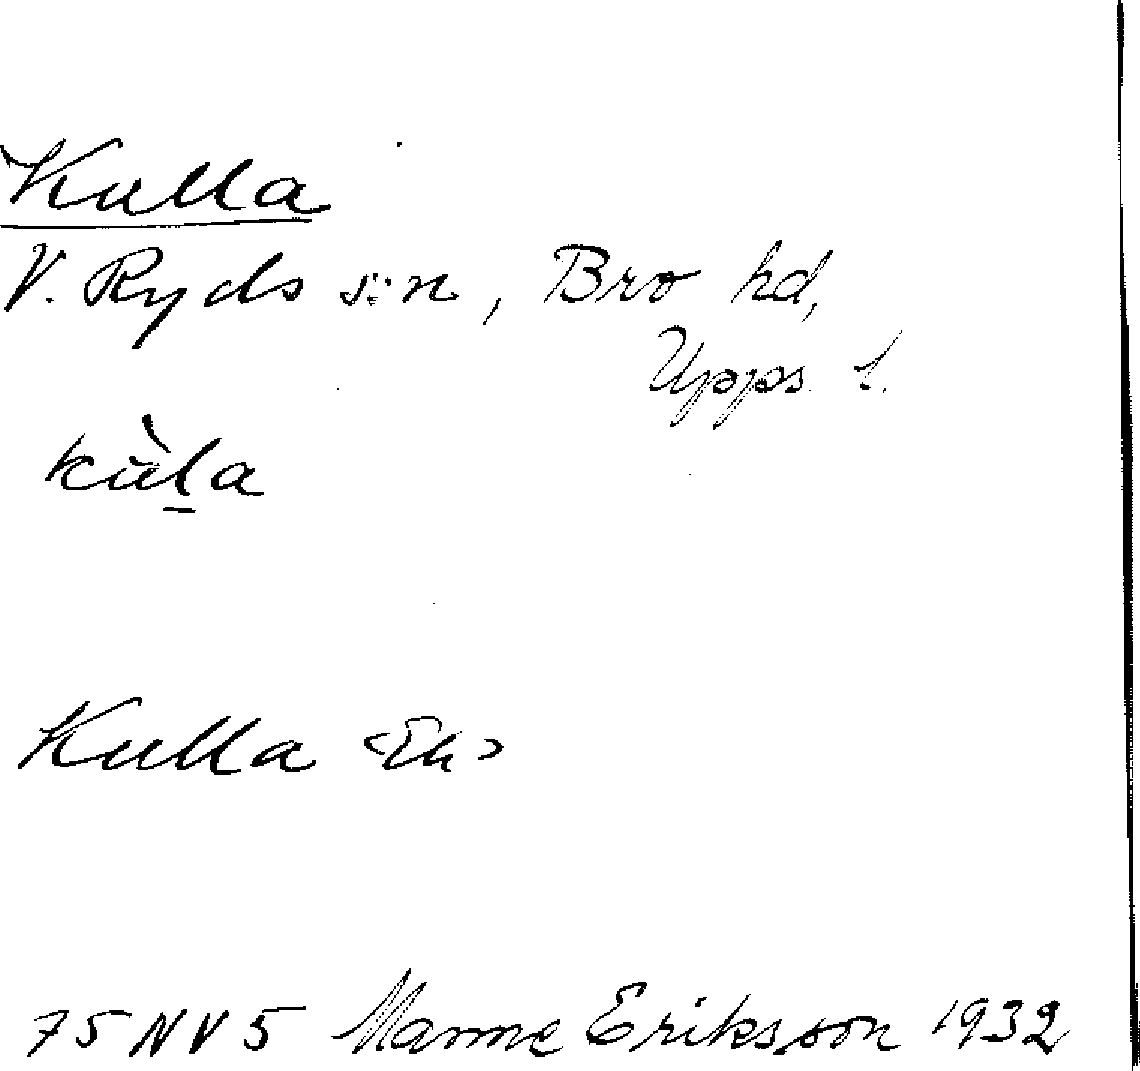 Kulla
V. Ryds s:n, Bro hd,
Upps. l.
kùl̠a
Kulla <Ek>
75 NV 5 Manne Eriksson 1932